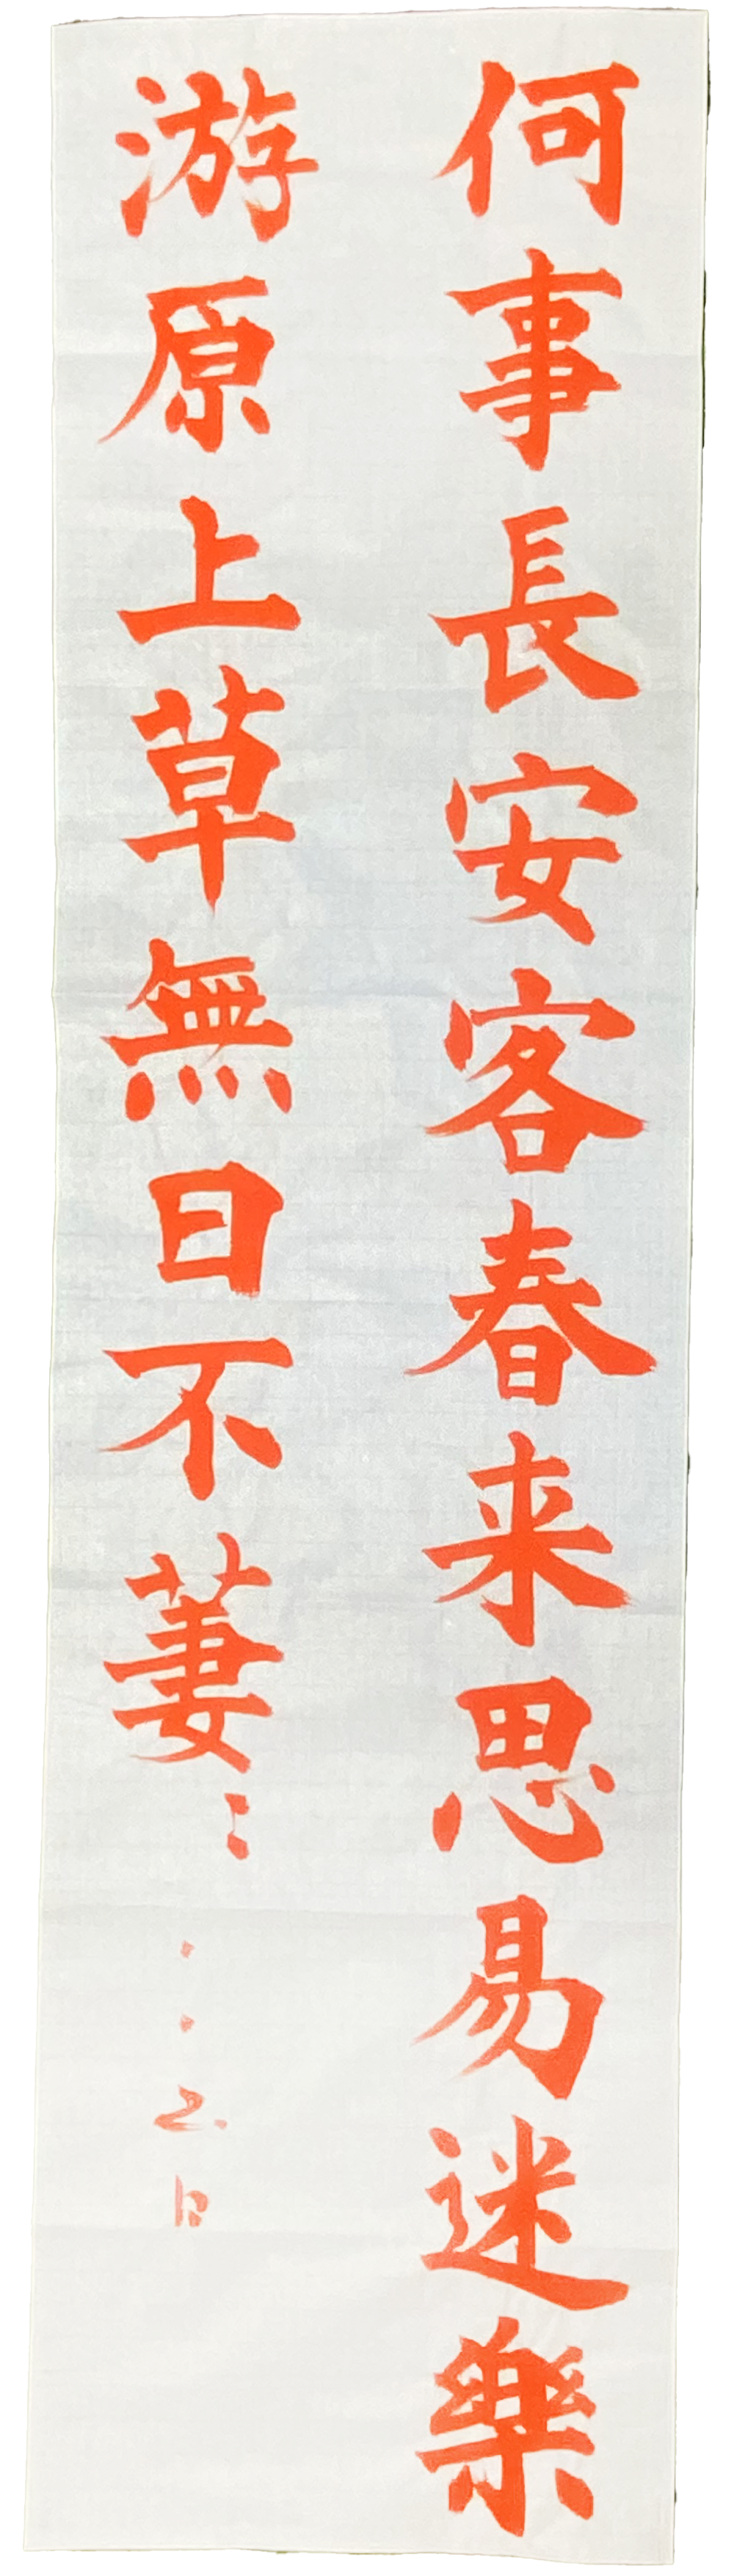 何事長安客春来思易迷樂
游原上草無日不萋〻